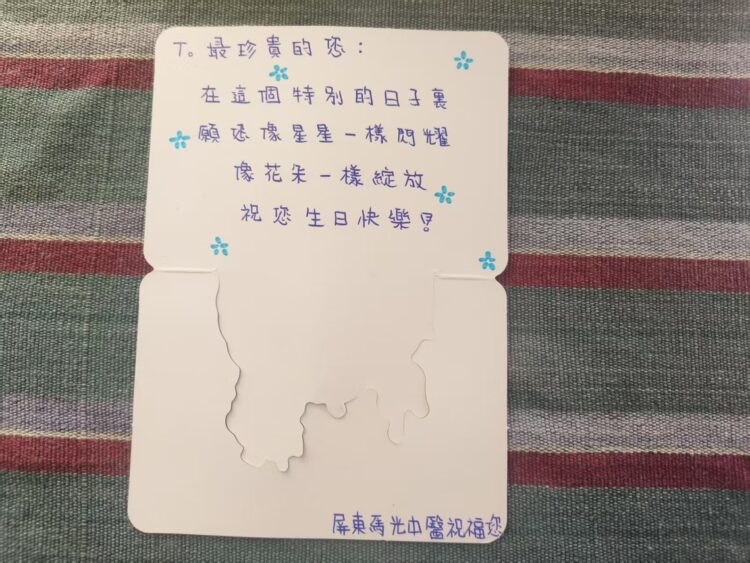 To 最珍貴的您：
在這個特別的日子裏
願您像星星一樣閃耀
像花朵一樣綻放
祝您生日快樂！
屏東馬光中醫祝福您